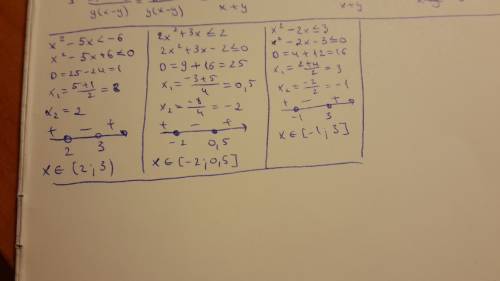 y(x-y) y(x-y) x+y x+y
x² - 5x < -6
x² - 5x + 6 ≤ 0
D = 25 - 24 = 1
x₁ = (5+1)/2 = 3
x₂ = 2
+ - +
2 3
x ∈ (2; 3)
2x² + 3x ≤ 2
2x² + 3x - 2 ≤ 0
D = 9 + 16 = 25
x₁ = (-3+5)/4 = 0,5
x₂ = -8/4 = -2
+ - +
-2 0,5
x ∈ [-2; 0,5]
x² - 2x ≤ 3
x² - 2x - 3 ≤ 0
D = 4 + 12 = 16
x₁ = (2+4)/2 = 3
x₂ = -2/2 = -1
+ - +
-1 3
x ∈ [-1; 3]